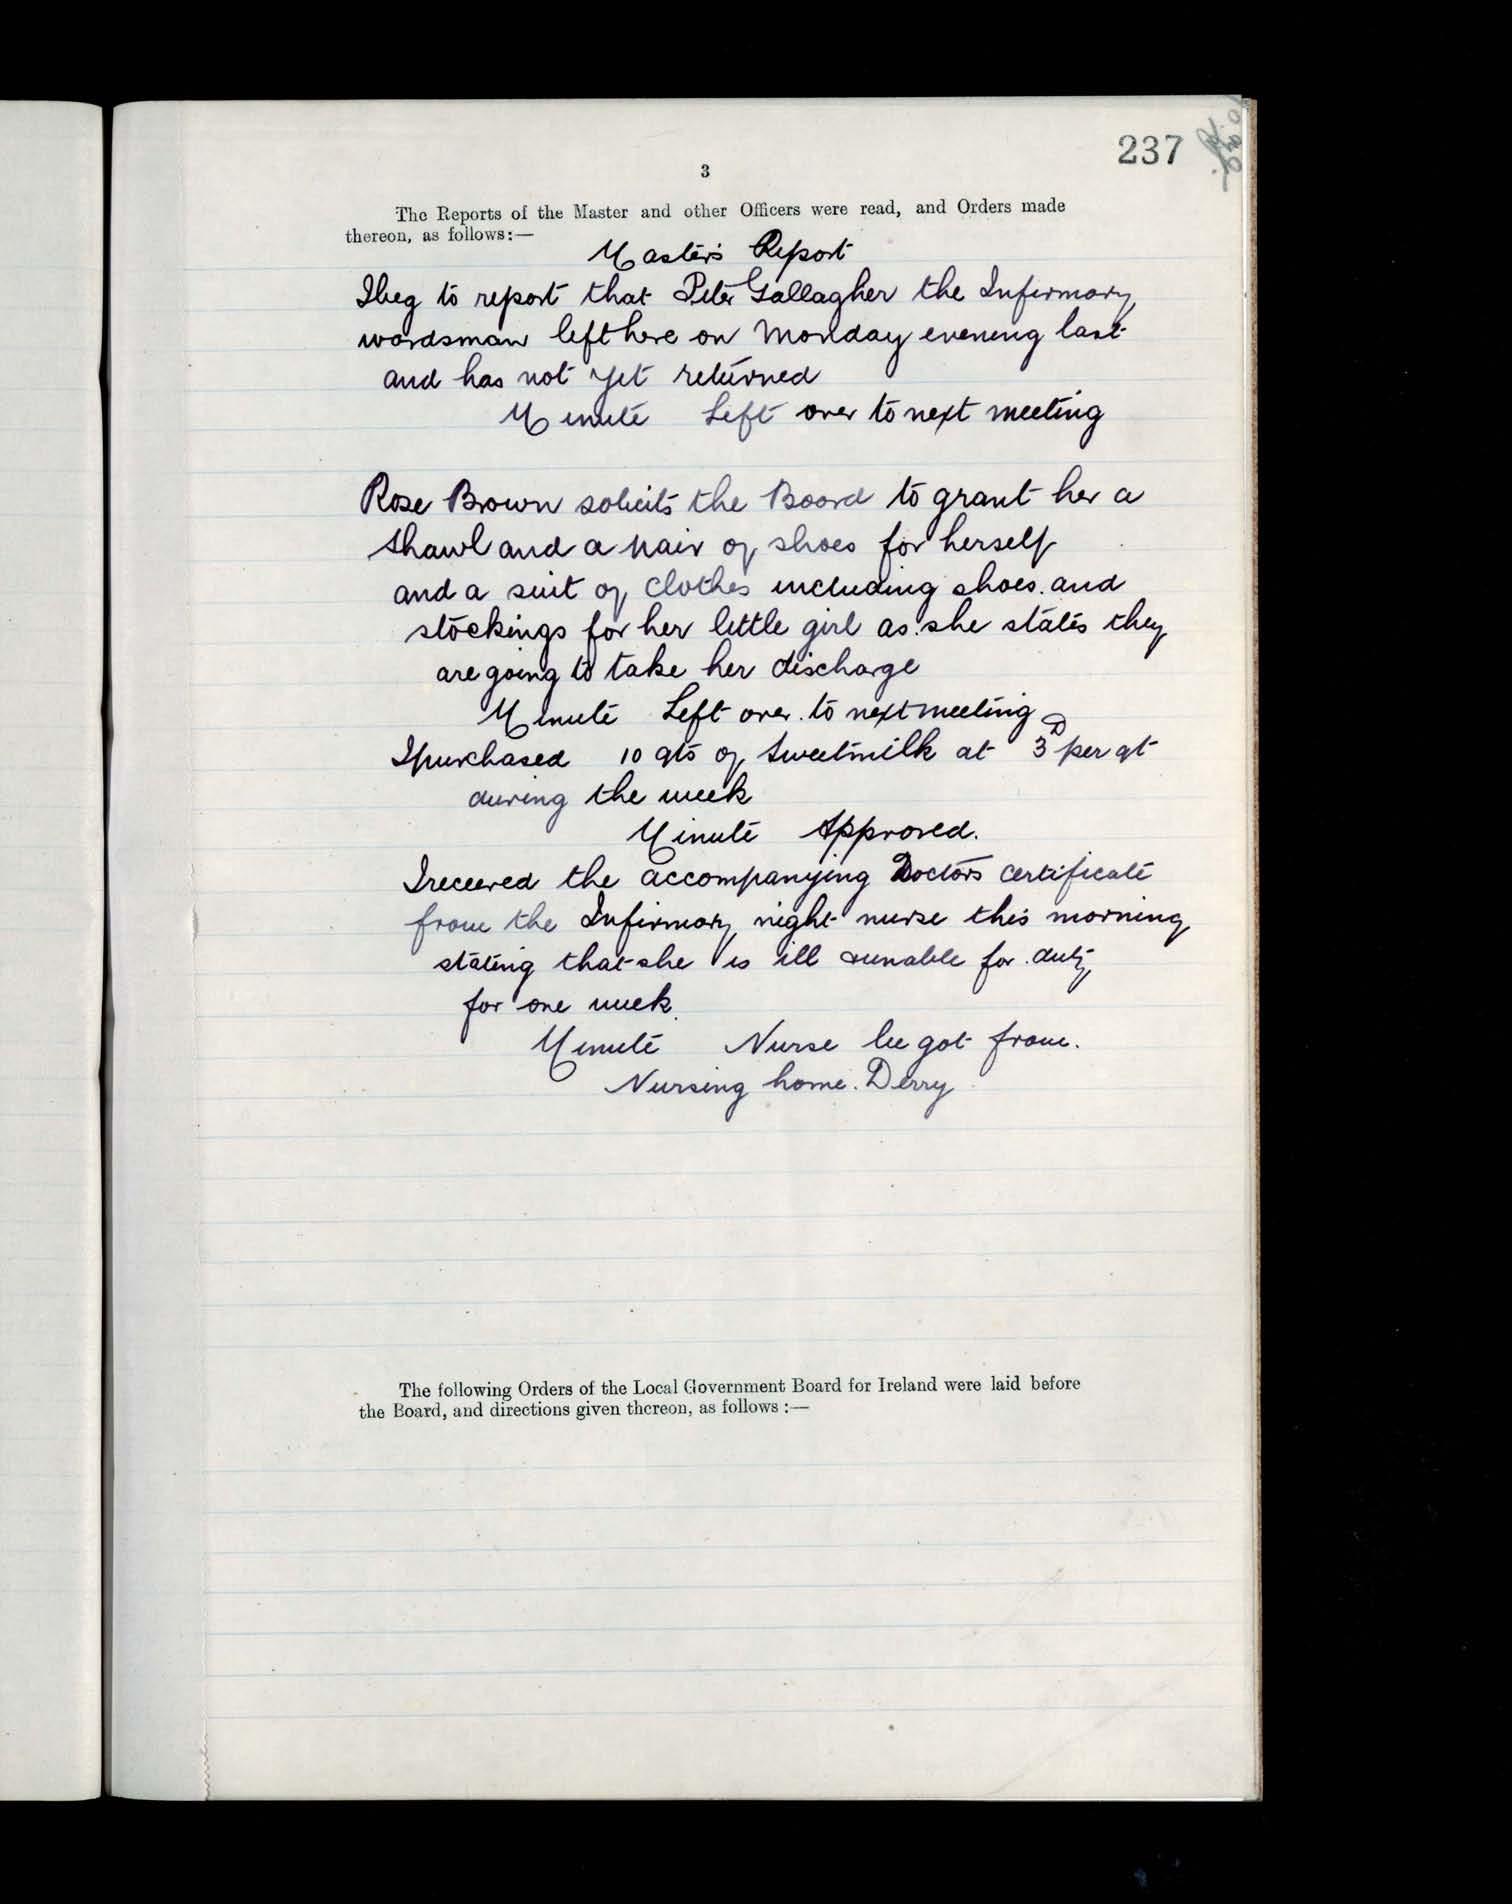 237
3
The Reports of the Master and other Officers were read, and Orders made
thereon, as follows:—
Master's Report
I beg to report that Peter Gallagher the Infirmary
wardsman left here on Monday evening last
and has not yet returned
Minute Left over to next meeting
Rose Brown solicits the Board to grant her a
shawl and a pair of shoes for herself
and a suit of clothes including shoes and
stockings for her little girl as she states they
are going to take her discharge
Minute Left over to next meeting
I purchased 10 qts of Sweetmilk at 3D per qt
during the week
Minute Approved.
I received the accompanying Doctors certificate
from the Infirmary night nurse this morning
stating that she is ill & unable for duty
for one week.
Minute Nurse be got from
Nursing home. Derry
The following Orders of the Local Government Board for Ireland were laid before
the Board, and directions given thereon, as follows :—